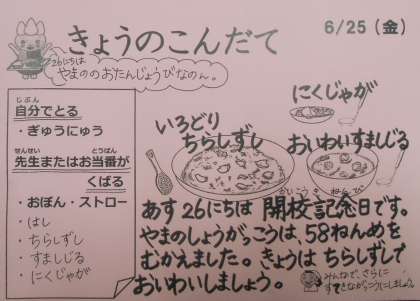 きょうのこんだて
6/25(金)
26にちは
やまののおたんじょうびなのん。
自分でとる
じぶん
・ぎゅうにゅう
せんせい とうばん
先生またはお当番が
くばる
・おぼん・ストロー
・はし
・ちらしずし
・すましじる
・にくじゃが
にくじゃが
いろどり
ちらしずし
おいわいすましじる
かいこうきねんび
あす26にちは 開校記念日です。
やまのしょうがっこうは、58ねんめを
むかえました。きょうは ちらしずしで
おいわいしましょう。
みんなで、さらに
すてきながっこうにしましょう。